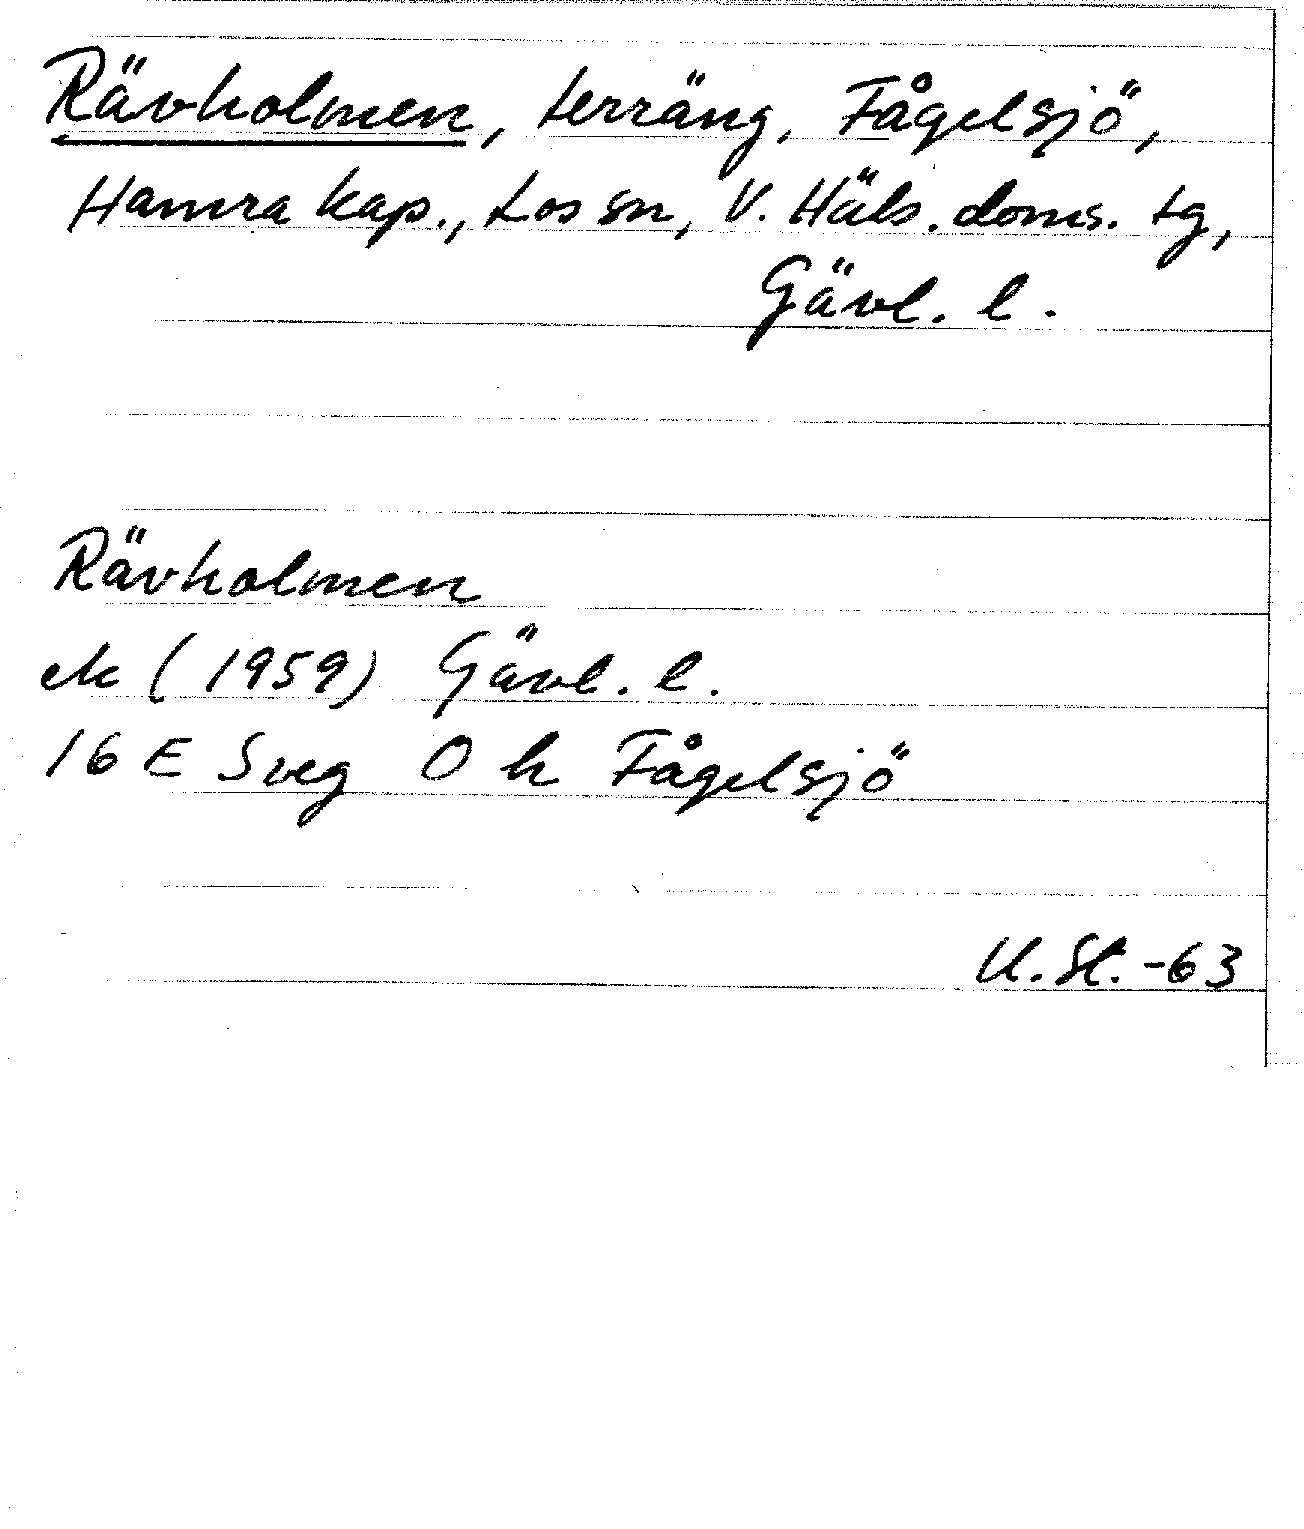 Rävholmen, terräng, Fågelsjö,
Hamra kap., Los sn, V. Häls. doms. tg,
Gävl. l.
Rävholmen
ek (1959) Gävl. l.
16 E Sveg O h Fågelsjö
U. St. -63